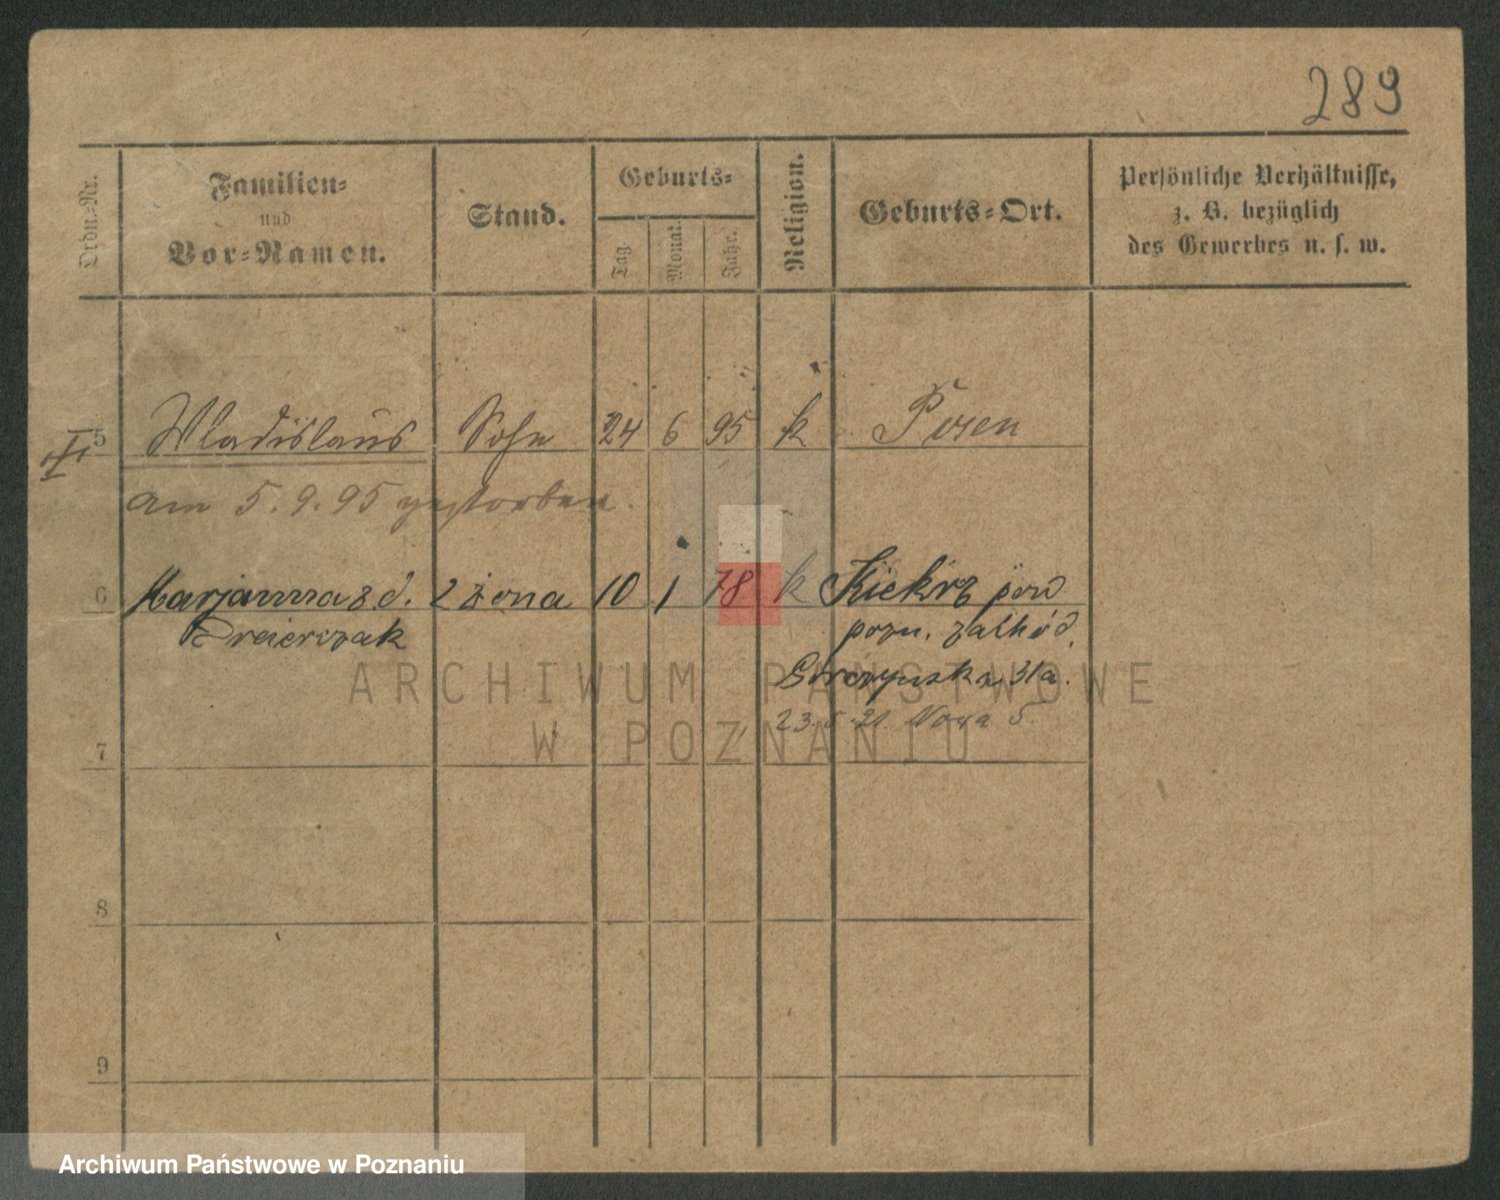 289
Ordn.-Nr.
Familien-
und
Vor-Namen.
Stand.
Geburts-
Tag
Monat.
Jahr.
Religion.
Geburts-Ort.
Persönliche Verhältnisse,
z. B. bezüglich
des Gewerbes u. s. w.
5 Wladislaus Sohn 24 6 95 k Posen
am 5. 9. 95 gestorben.
6 Marjanna z d. 2 żona 10 1 78 k Kiekrz pow
pozn. zach.
31a.
23. 5. 21. 5.
7
8
9
ARCHIWUM PAŃSTWOWE
W POZNANIU
Archiwum Państwowe w Poznaniu